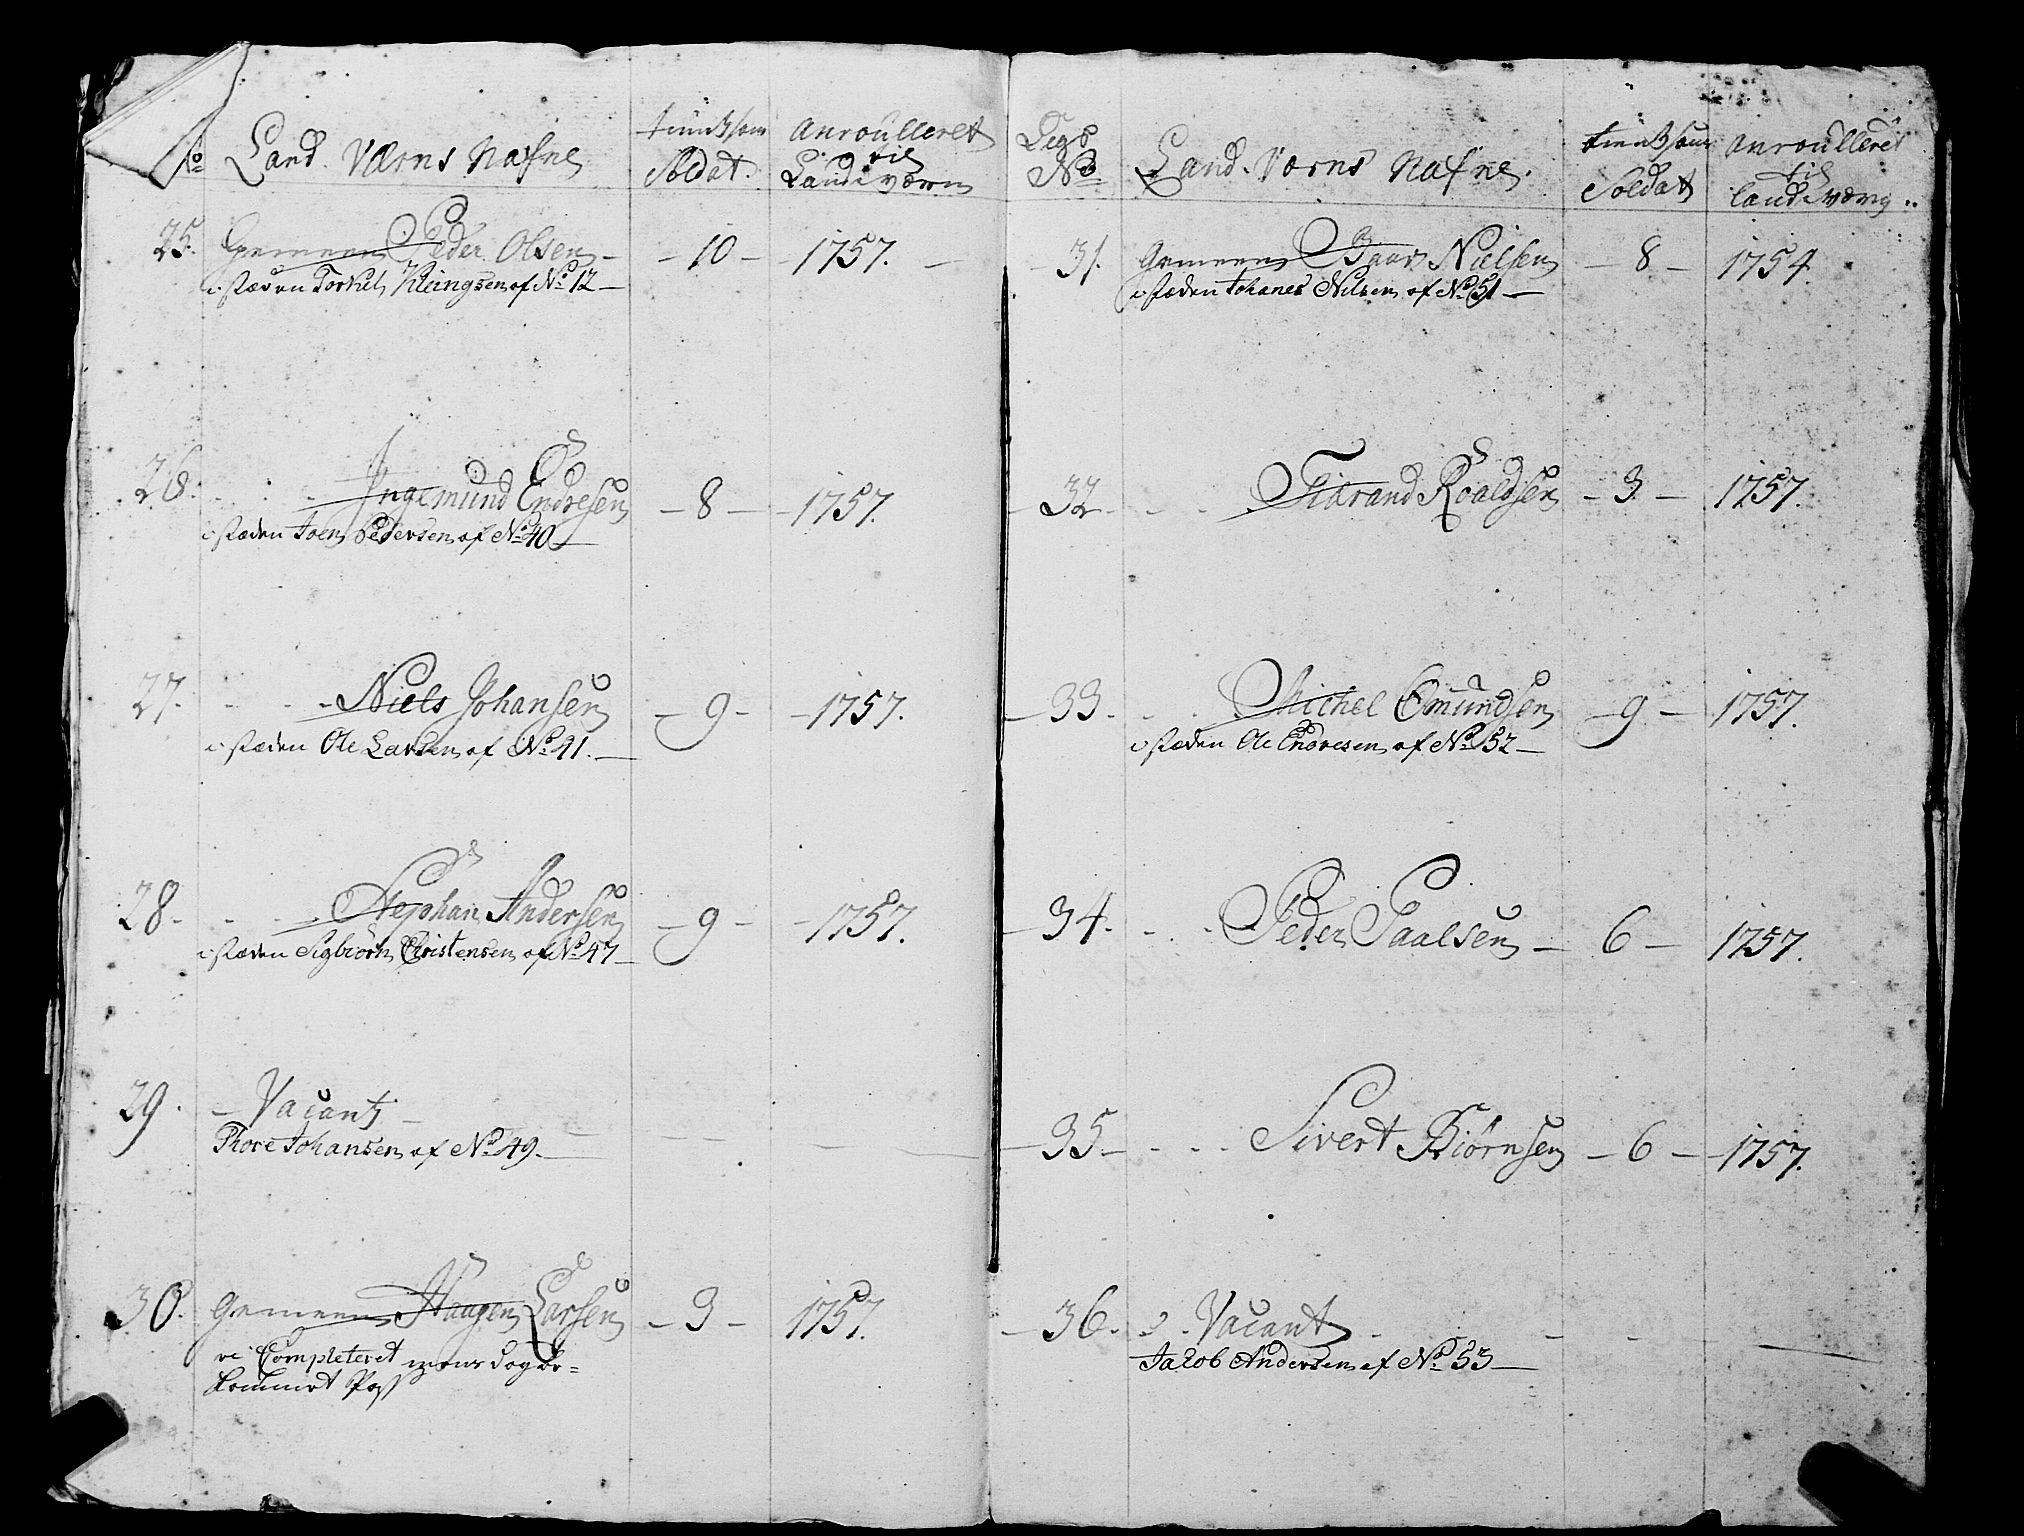 No Land Værns Nafne tient som Soldat. anroulleret til Land Værn
25. Gemeen Peder Olsen - 10 - - 1757. -
i stæden Torkil Kleingsen af No 12 -
26. Jngemund Endresen - 8 - - 1757.
i stæden Joen Pedersen af No 40
27. Niels Johansen - 9 - - 1757.
i stæden Ole Larsen af No 41. -
28 - Stephan Andersen - 9 - - 1757.
i stæden Sigbiörn Christensen af No 47 -
29. - Vacant -
Thore Johansen af No 49. -
30. Gemeen Haagen Larsen - 3 - 1757.
Completeret
kommet Pass
Legs No Land Værns Nafne. tient som Soldat anroulleret til land Værn
- 31. Gemeen Baar Nielsen - 8 - 1754.
i stæden Johanes Nilsen af No 51 -
- 32 - Tiærand Roaldsen - 3. - 1757.
- 33 - Michel Omundsen - 9 - 1757.
i stæden Ole Endresen af No 52 -
- 34 - Peder Paalsen - 6 - 1757.
- 35 - Sivert Biörnsen - 6 - - 1757.
- 36 - Vacant -
Jacob Andersen af No 53 -